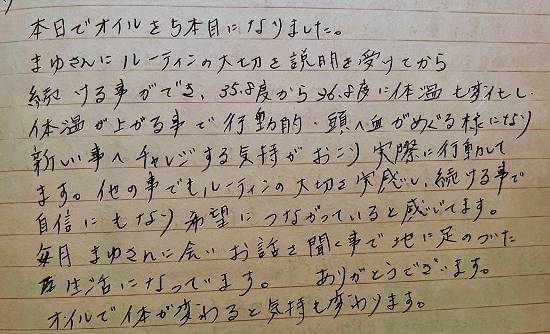 本日でオイルを5本目になりました。
まゆさんにルーティンの大切を説明を受けてから
続ける事ができ、35.8度から36.8度に体温も変化し
体温が上がる事で行動的・頭へ血がめぐる様になり
新しい事へチャレンジする気持がおこり実際に行動して
ます。他の事でもルーティンの大切を実感し、続ける事で
自信にもなり希望につながっていると感じてます。
毎月まゆさんに会いお話を聞く事で地に足のついた
生活になっています。 ありがとうございます。
オイルで体が変わると気持も変わります。